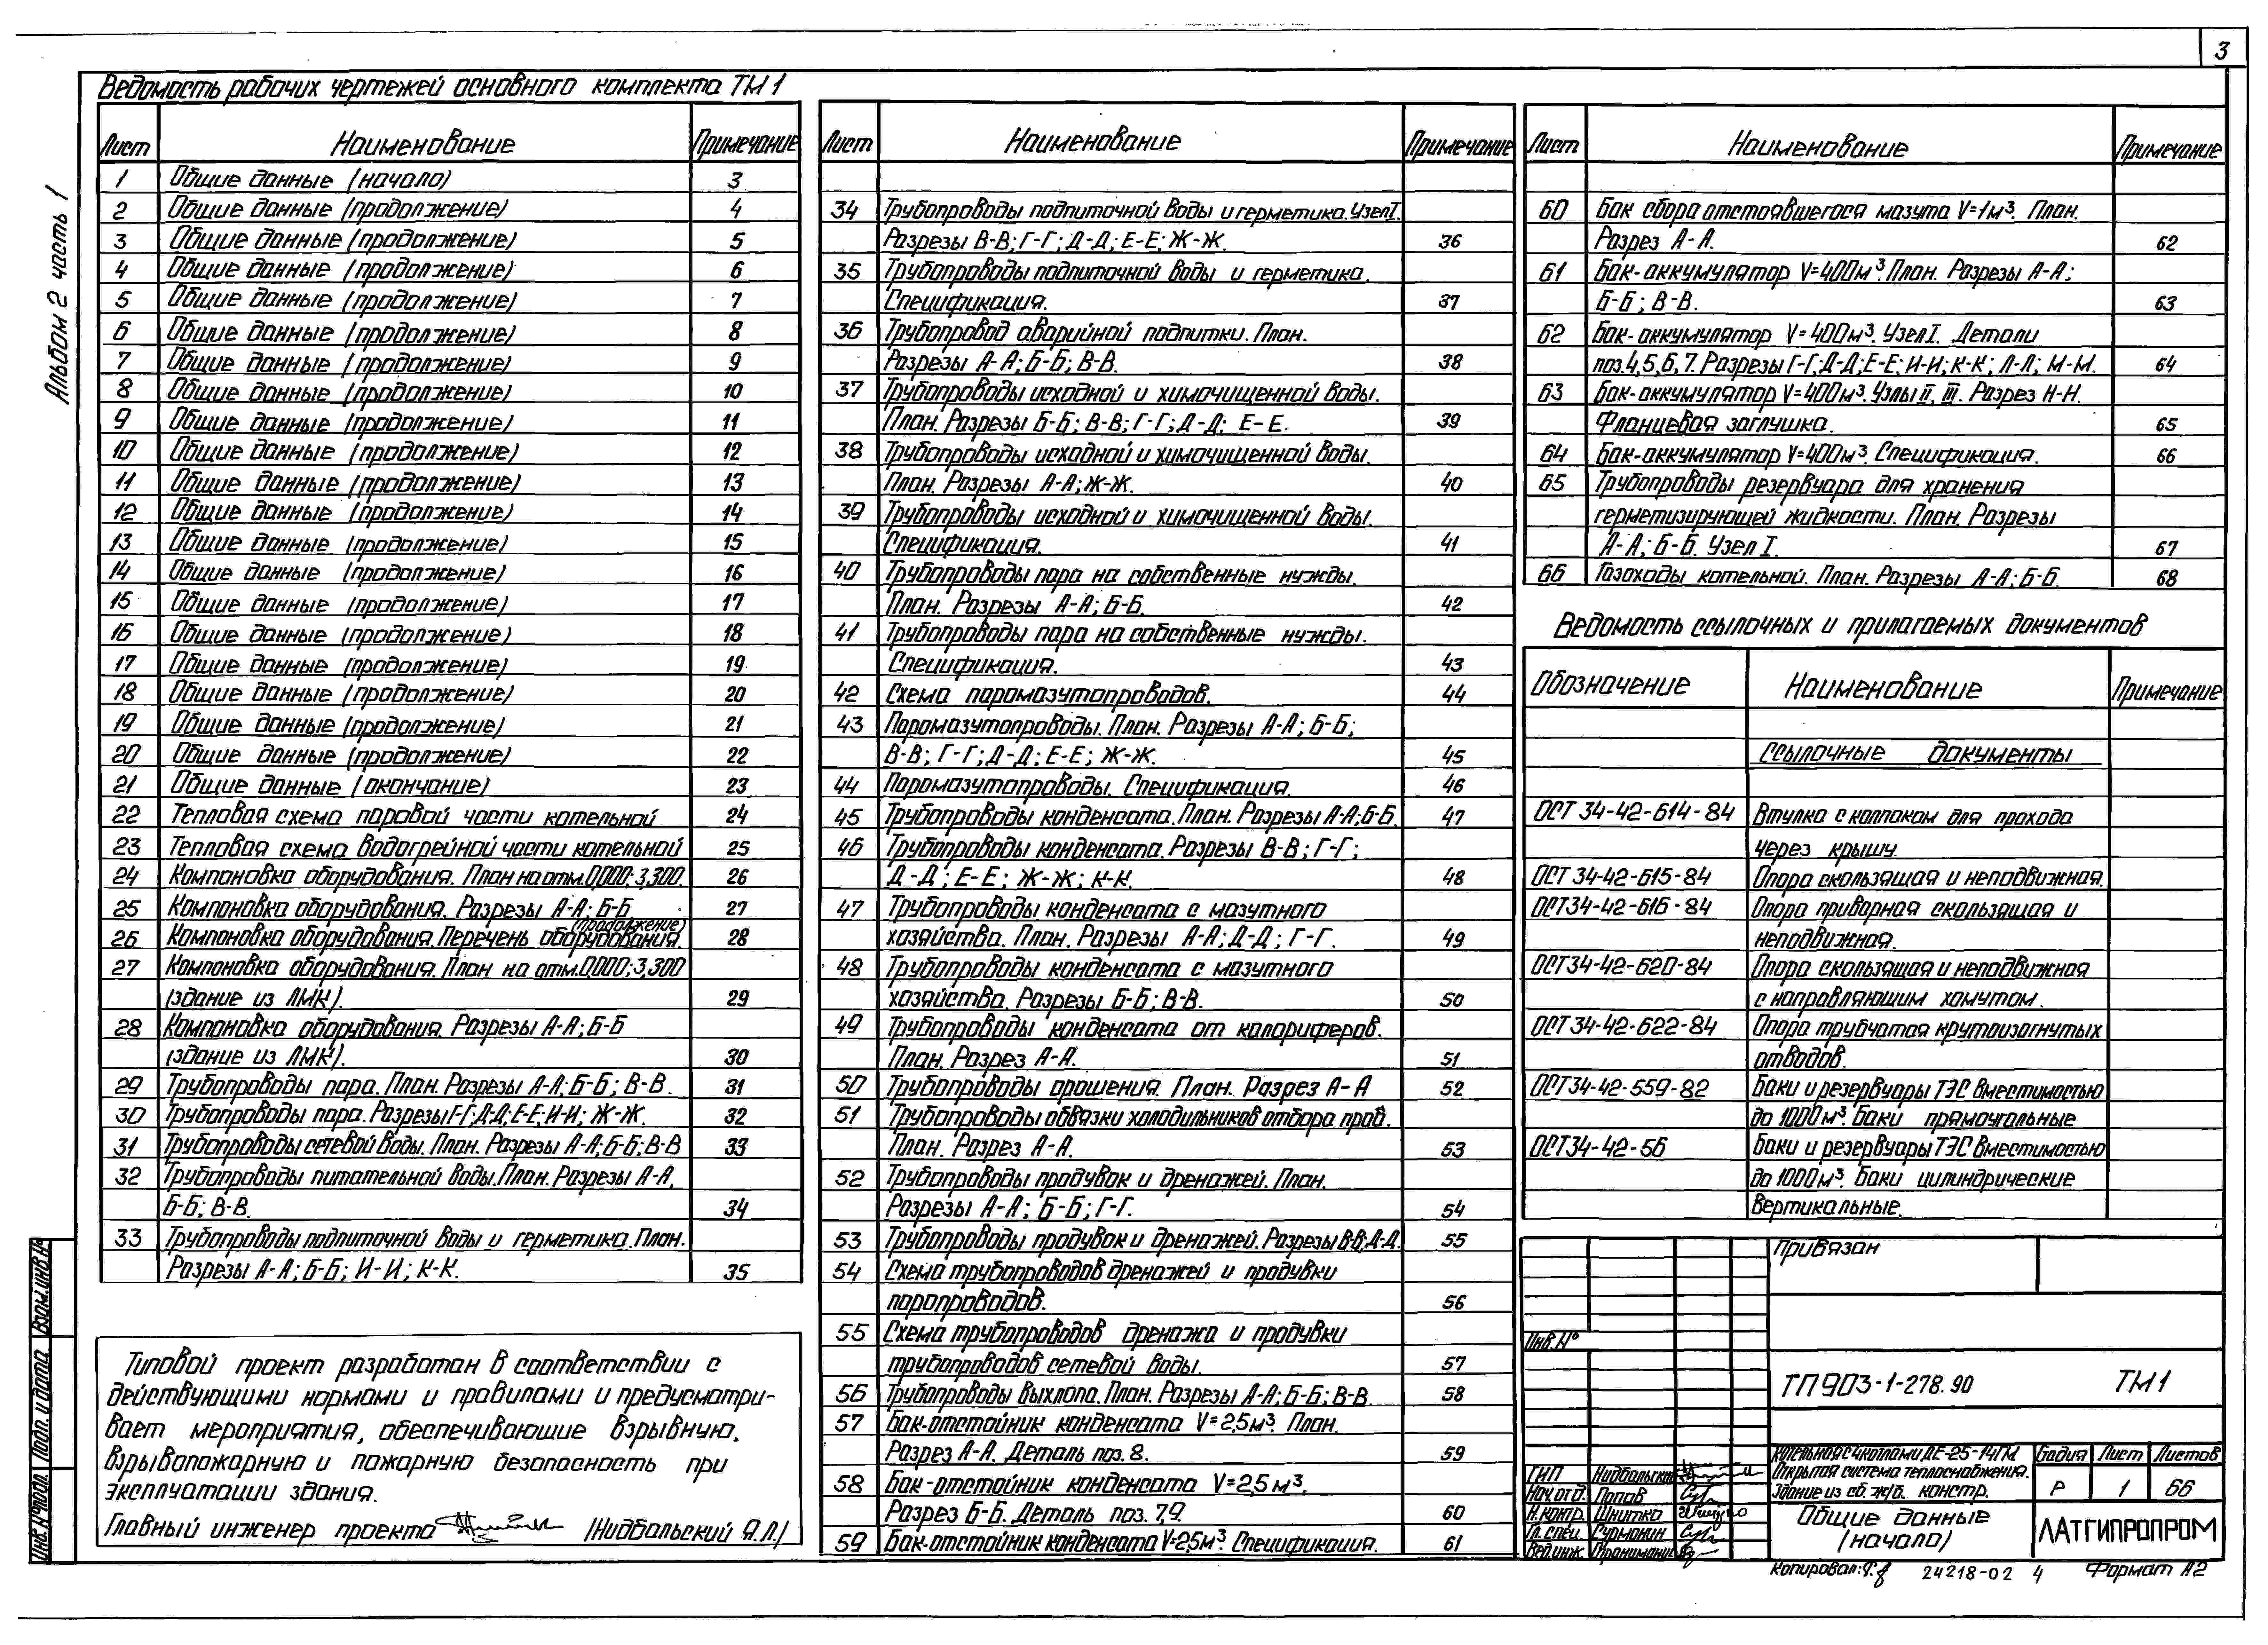 3
Альбом 2 часть 1
Ведомость рабочих чертежей основного комплекта ТМ1
Лист Наименование Примечание
1 Общие данные (начало) 3
2 Общие данные (продолжение) 4
3 Общие данные (продолжение) 5
4 Общие данные (продолжение) 6
5 Общие данные (продолжение) 7
6 Общие данные (продолжение) 8
7 Общие данные (продолжение) 9
8 Общие данные (продолжение) 10
9 Общие данные (продолжение) 11
10 Общие данные (продолжение) 12
11 Общие данные (продолжение) 13
12 Общие данные (продолжение) 14
13 Общие данные (продолжение) 15
14 Общие данные (продолжение) 16
15 Общие данные (продолжение) 17
16 Общие данные (продолжение) 18
17 Общие данные (продолжение) 19
18 Общие данные (продолжение) 20
19 Общие данные (продолжение) 21
20 Общие данные (продолжение) 22
21 Общие данные (окончание) 23
22 Тепловая схема паровой части котельной 24
23 Тепловая схема водогрейной части котельной 25
24 Компоновка оборудования. План на отм.0,000; 3,300. 26
25 Компоновка оборудования. Разрезы А-А; Б-Б 27
(продолжение)
26 Компоновка оборудования. Перечень оборудования. 28
27 Компоновка оборудования. План на отм.0,000; 3,300
(здание из ЛМК). 29
28 Компоновка оборудования. Разрезы А-А; Б-Б
(здание из ЛМК). 30
29 Трубопроводы пара. План. Разрезы А-А; Б-Б; В-В. 31
30 Трубопроводы пара. Разрезы Г-Г; Д-Д; Е-Е; И-И; Ж-Ж. 32
31 Трубопроводы сетевой воды. План. Разрезы А-А; Б-Б; В-В 33
32 Трубопроводы питательной воды. План. Разрезы А-А,
Б-Б; В-В. 34
33 Трубопроводы подпиточной воды и герметика. План.
Разрезы А-А; Б-Б; И-И; К-К. 35
Типовой проект разработан в соответствии с
действующими нормами и правилами и предусматри-
вает мероприятия, обеспечивающие взрывную,
взрывопожарную и пожарную безопасность при
эксплуатации здания.
Главный инженер проекта (Нидбальский Я.Л.)
Лист Наименование Примечание
34 Трубопроводы подпиточной воды и герметика. Узел I.
Разрезы В-В; Г-Г; Д-Д; Е-Е; Ж-Ж. 36
35 Трубопроводы подпиточной воды и герметика.
Спецификация. 37
36 Трубопровод аварийной подпитки. План.
Разрезы А-А; Б-Б; В-В. 38
37 Трубопроводы исходной и химочищенной воды.
План. Разрезы Б-Б; В-В; Г-Г; Д-Д; Е-Е. 39
38 Трубопроводы исходной и химочищенной воды.
План. Разрезы А-А; Ж-Ж. 40
39 Трубопроводы исходной и химочищенной воды.
Спецификация. 41
40 Трубопроводы пара на собственные нужды.
План. Разрезы А-А; Б-Б. 42
41 Трубопроводы пара на собственные нужды.
Спецификация. 43
42 Схема паромазутопроводов. 44
43 Паромазутопроводы. План. Разрезы А-А; Б-Б;
В-В; Г-Г; Д-Д; Е-Е; Ж-Ж. 45
44 Паромазутопроводы. Спецификация. 46
45 Трубопроводы конденсата. План. Разрезы А-А; Б-Б. 47
46 Трубопроводы конденсата. Разрезы В-В; Г-Г;
Д-Д; Е-Е; Ж-Ж; К-К. 48
47 Трубопроводы конденсата с мазутного
хозяйства. План. Разрезы А-А; Д-Д; Г-Г. 49
48 Трубопроводы конденсата с мазутного
хозяйства. Разрезы Б-Б; В-В. 50
49 Трубопроводы конденсата от калориферов.
План. Разрез А-А. 51
50 Трубопроводы орошения. План. Разрез А-А 52
51 Трубопроводы обвязки холодильников отбора проб.
План. Разрез А-А. 53
52 Трубопроводы продувок и дренажей. План.
Разрезы А-А; Б-Б; Г-Г. 54
53 Трубопроводы продувок и дренажей. Разрезы В-В; Д-Д. 55
54 Схема трубопроводов дренажей и продувки
паропроводов. 56
55 Схема трубопроводов дренажа и продувки
трубопроводов сетевой воды. 57
56 Трубопроводы выхлопа. План. Разрезы А-А; Б-Б; В-В. 58
57 Бак-отстойник конденсата V=2,5м³. План.
Разрез А-А. Деталь поз.8. 59
58 Бак-отстойник конденсата V=2,5м³.
Разрез Б-Б. Деталь поз. 7,9. 60
59 Бак-отстойник конденсата V=2,5м³. Спецификация. 61
Лист Наименование Примечание
60 Бак сбора отстоявшегося мазута V=1м³. План.
Разрез А-А. 62
61 Бак-аккумулятор V=400м³. План. Разрезы А-А;
Б-Б; В-В. 63
62 Бак-аккумулятор V=400м³. Узел I. Детали
поз.4,5,6,7. Разрезы Г-Г; Д-Д; Е-Е; И-И; К-К; Л-Л; М-М. 64
63 Бак-аккумулятор V=400м³. Узлы II, III. Разрез Н-Н.
Фланцевая заглушка. 65
64 Бак-аккумулятор V=400м³. Спецификация. 66
65 Трубопроводы резервуара для хранения
герметизирующей жидкости. План. Разрезы
А-А; Б-Б. Узел I. 67
66 Газоходы котельной. План. Разрезы А-А; Б-Б. 68
Ведомость ссылочных и прилагаемых документов
Обозначение Наименование Примечание
Ссылочные документы
ОСТ 34-42-614-84 Втулка с колпаком для прохода
через крышу.
ОСТ 34-42-615-84 Опора скользящая и неподвижная.
ОСТ 34-42-616-84 Опора приварная скользящая и
неподвижная.
ОСТ 34-42-620-84 Опора скользящая и неподвижная
с направляющим хомутом.
ОСТ 34-42-622-84 Опора трубчатая крутоизогнутых
отводов.
ОСТ 34-42-559-82 Баки и резервуары ТЭС вместимостью
до 1000м³. Баки прямоугольные
ОСТ 34-42-56 Баки и резервуары ТЭС вместимостью
до 1000м³. Баки цилиндрические
вертикальные.
Привязан
Инв.№
ТП 903-1-278.90 ТМ1
Котельная с 4 котлами ДЕ-25-14ГМ.
Открытая система теплоснабжения.
Здание из сб. ж/б. констр.
Стадия Лист Листов
Р 1 66
ГИП Нидбальский
Нач.отд. Попов
Н.контр. Шнитко
Гл.спец. Сурмонин
Вед.инж.
Общие данные
(начало)
ЛАТГИПРОПРОМ
Копировал: 24218-02 4 Формат А2
Взам.инв.№
Подп. и дата
Инв.№ подл.